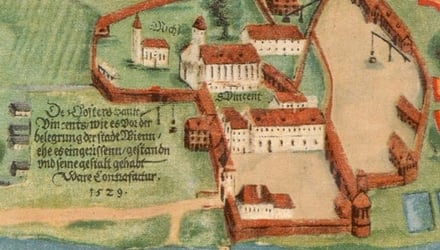 Michl
S. Vincent
Des Closters sannt
Vincents, wie es Vor der
belegrung der stadt Wienn,
ehe es eingerissenn, gestandn
vnd seine gestalt gehabt
Ware Contrafactur.
1529.